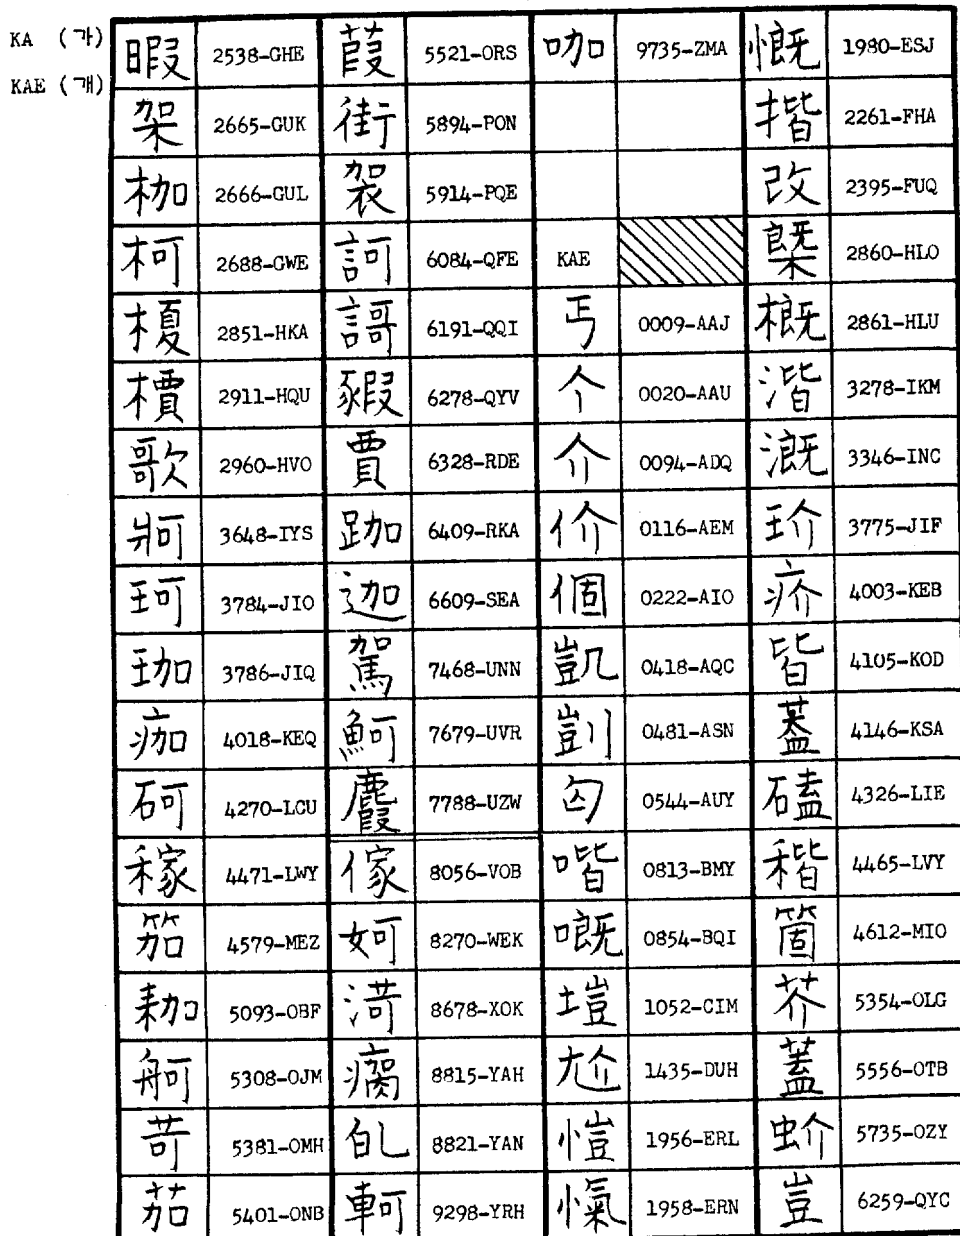 KA (가)
KAE (개)
暇 2538-GHE 葭 5521-ORS 咖 9735-ZMA 慨 1980-ESJ
架 2665-GUK 街 5894-PON 揩 2261-FHA
枷 2666-GUL 袈 5914-PQE 改 2395-FUQ
柯 2688-GWE 訶 6084-QFE KAE 槩 2860-HLO
榎 2851-HKA 謌 6191-QQI 丐 0009-AAJ 概 2861-HLU
檟 2911-HQU 豭 6278-QYV 个 0020-AAU 湝 3278-IKM
歌 2960-HVO 賈 6328-RDE 介 0094-ADQ 漑 3346-INC
牁 3648-IYS 跏 6409-RKA 价 0116-AEM 玠 3775-JIF
珂 3784-JIO 迦 6609-SEA 個 0222-AIO 疥 4003-KEB
珈 3786-JIQ 駕 7468-UNN 凱 0418-AQC 皆 4105-KOD
痂 4018-KEQ 魺 7679-UVR 剴 0481-ASN 葢 4146-KSA
砢 4270-LCU 麚 7788-UZW 匃 0544-AUY 磕 4326-LIE
稼 4471-LWY 傢 8056-VOB 喈 0813-BMY 稭 4465-LVY
笳 4579-MEZ 妸 8270-WEK 嘅 0854-BQI 箇 4612-MIO
耞 5093-OBF 渮 8678-XOK 塏 1052-CIM 芥 5354-OLG
舸 5308-OJM 8815-YAH 尬 1435-DUH 蓋 5556-OTB
苛 5381-OMH 8821-YAN 愷 1956-ERL 蚧 5735-OZY
茄 5401-ONB 軻 9298-YRH 愾 1958-ERN 豈 6259-QYC